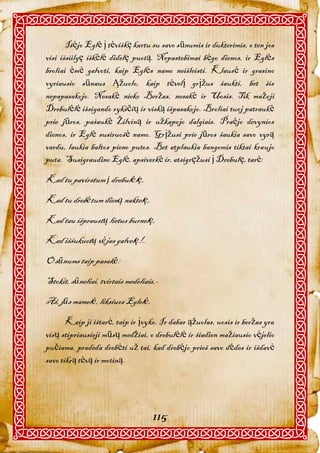 Įsėjo Eglė į tėviškę kartu su savo sūnumis ir dukterimis, o ten jos
visi išsiilgę iškėlė didelę puotą. Nepastebimai bėgo dienos, ir Eglės
broliai ėmė galvoti, kaip Eglės namo neišleisti. Klausė ir grasino
vyriausio sūnaus Ąžuolo, kaip tėvelį grįžus šaukti, bet šis
nepapasakojo. Nesakė nieko Beržas, nesakė ir Uosis. Tik mažoji
Drebulėlė išsigando rykščių ir viską išpasakojo. Broliai tuoj patraukė
prie jūros, pašaukė Žilviną ir užkapojo dalgiais. Praėjo devynios
dienos, ir Eglė susiruošė namo. Grįžusi prie jūros šaukia savo vyrą
vardu, laukia baltos pieno putos. Bet atplaukia bangomis tiktai kraujo
puta. Susigraudino Eglė, apsiverkė ir, atsigręžusi į Drebulę, tarė:
Kad tu pavirstum į drebulėlę,
Kad tu drebėtum dieną naktelę,
Kad tau išpraustų lietus burnelę,
Kad iššukuotų vėjas galvelę!..
O sūnums taip pasakė:
Stokit, sūneliai, tvirtais medeliais,-
Aš, jūs mamelė, liksiuos Eglelė.
Kaip ji ištarė, taip ir įvyko. Ir dabar ąžuolas, uosis ir beržas yra
visų stipriausieji mūsų medžiai, o drebulėlė ir šiadien mažiausio vėjelio
pučiama, pradeda drebėti už tai, kad drebėjo prieš savo dėdes ir išdavė
savo tikrą tėvą ir motiną.
115